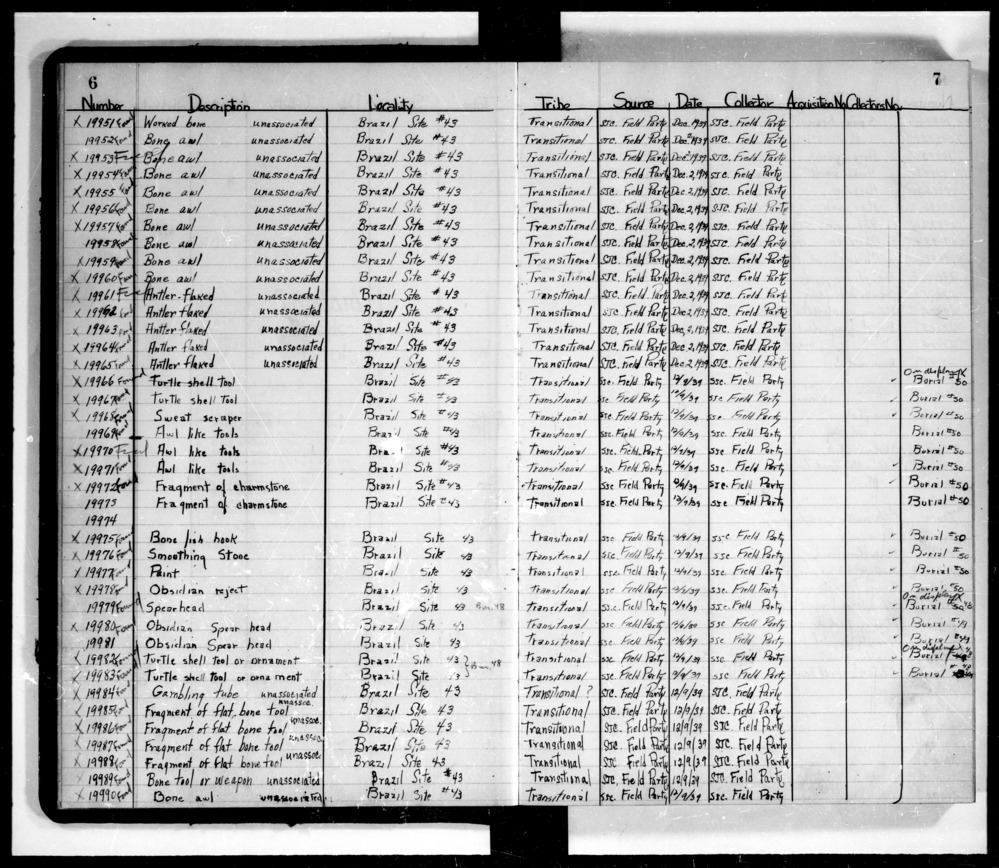 6
7
Number Description Locality Tribe Source Date Collector Acquisition No. Collectors No.
X 19951 Found Worked bone unassociated Brazil Site #43 Transitional SJC. Field Party Dec. 1939 SJC. Field Party
19952 Found Bone awl unassociated Brazil Site #43 Transitional SJC. Field Party Dec. 2, 1939 SJC. Field Party
X 19953 Found Bone awl unassociated Brazil Site #43 Transitional SJC. Field Party Dec. 2, 1939 SJC. Field Party
X 19954 Bone awl unassociated Brazil Site #43 Transitional SJC. Field Party Dec. 2, 1939 SJC. Field Party
X 19955 Bone awl unassociated Brazil Site #43 Transitional SJC. Field Party Dec. 2, 1939 SJC. Field Party
X 19956 Bone awl unassociated Brazil Site #43 Transitional SJC. Field Party Dec. 2, 1939 SJC. Field Party
X 19957 Bone awl unassociated Brazil Site #43 Transitional SJC. Field Party Dec. 2, 1939 SJC. Field Party
19958 Found Bone awl unassociated Brazil Site #43 Transitional SJC. Field Party Dec. 2, 1939 SJC. Field Party
X 19959 Bone awl unassociated Brazil Site #43 Transitional SJC. Field Party Dec. 2, 1939 SJC. Field Party
X 19960 Found Bone awl unassociated Brazil Site #43 Transitional SJC. Field Party Dec. 2, 1939 SJC. Field Party
X 19961 Antler-flaked unassociated Brazil Site #43 Transitional SJC. Field Party Dec. 2, 1939 SJC. Field Party
X 19962 Antler flaked unassociated Brazil Site #43 Transitional SJC. Field Party Dec. 2, 1939 SJC. Field Party
X 19963 Antler flaked unassociated Brazil Site #43 Transitional SJC. Field Party Dec. 2, 1939 SJC. Field Party
X 19964 Antler flaked unassociated Brazil Site #43 Transitional SJC. Field Party Dec. 2, 1939 SJC. Field Party
X 19965 Antler flaked unassociated Brazil Site #43 Transitional SJC. Field Party Dec. 2, 1939 SJC. Field Party
On display
X 19966 Found Turtle shell tool Brazil Site #43 Transitional SJC. Field Party 12/9/39 SJC. Field Party Burial #50
X 19967 Turtle shell tool Brazil Site #43 Transitional SJC. Field Party 12/9/39 SJC. Field Party Burial #50
X 19968 Sweat scraper Brazil Site #43 Transitional SJC. Field Party 12/9/39 SJC. Field Party Burial #50
19969 Awl like tools Brazil Site #43 Transitional SJC. Field Party 12/9/39 SJC. Field Party Burial #50
X 19970 Found Awl like tools Brazil Site #43 Transitional SJC. Field Party 12/9/39 SJC. Field Party Burial #50
X 19971 Awl like tools Brazil Site #43 Transitional SJC. Field Party 12/9/39 SJC. Field Party Burial #50
X 19972 Found Fragment of charmstone Brazil Site #43 Transitional SJC. Field Party 12/9/39 SJC. Field Party Burial #50
19973 Fragment of charmstone Brazil Site #43 Transitional SJC. Field Party 12/9/39 SJC. Field Party Burial #50
19974
X 19975 Found Bone fish hook Brazil Site 43 Transitional SJC. Field Party 12/9/39 SJC. Field Party Burial #50
X 19976 Found Smoothing Stone Brazil Site 43 Transitional SJC. Field Party 12/9/39 SJC. Field Party Burial #50
X 19977 Found Paint Brazil Site 43 Transitional SJC. Field Party 12/9/39 SJC. Field Party Burial #50
X 19978 Obsidian reject Brazil Site 43 Transitional SJC. Field Party 12/9/39 SJC. Field Party Burial #50
On display
19979 Found Spearhead Brazil Site 43 Bur. 48 Transitional SJC. Field Party 12/9/39 SJC. Field Party Burial
X 19980 Found Obsidian Spear head Brazil Site 43 Transitional SJC. Field Party 12/9/39 SJC. Field Party Burial #49
19981 Obsidian Spear head Brazil Site 43 Transitional SJC. Field Party 12/9/39 SJC. Field Party Burial #49
On display
X 19982 Turtle shell tool or ornament Brazil Site 43 Bur. 48 Transitional SJC. Field Party 12/9/39 SJC. Field Party Burial
X 19983 Found Turtle shell tool or ornament Brazil Site 43 Transitional SJC. Field Party 12/9/39 SJC. Field Party Burial
X 19984 Found Gambling tube unassociated Brazil Site 43 Transitional ? SJC. Field Party 12/9/39 SJC. Field Party
X 19985 Found Fragment of flat bone tool unassoc. Brazil Site 43 Transitional SJC. Field Party 12/9/39 SJC. Field Party
X 19986 Found Fragment of flat bone tool unassoc. Brazil Site 43 Transitional SJC Field Party 12/9/39 SJC. Field Party
X 19987 Found Fragment of flat bone tool unassoc. Brazil Site 43 Transitional SJC. Field Party 12/9/39 SJC. Field Party
X 19988 Fragment of flat bone tool unassoc. Brazil Site 43 Transitional SJC Field Party 12/9/39 SJC Field Party
X 19989 Found Bone tool or weapon unassociated Brazil Site #43 Transitional SJC. Field Party 12/9/39 SJC. Field Party
X 19990 Found Bone awl unassociated Brazil Site #43 Transitional SJC. Field Party 12/9/39 SJC. Field Party